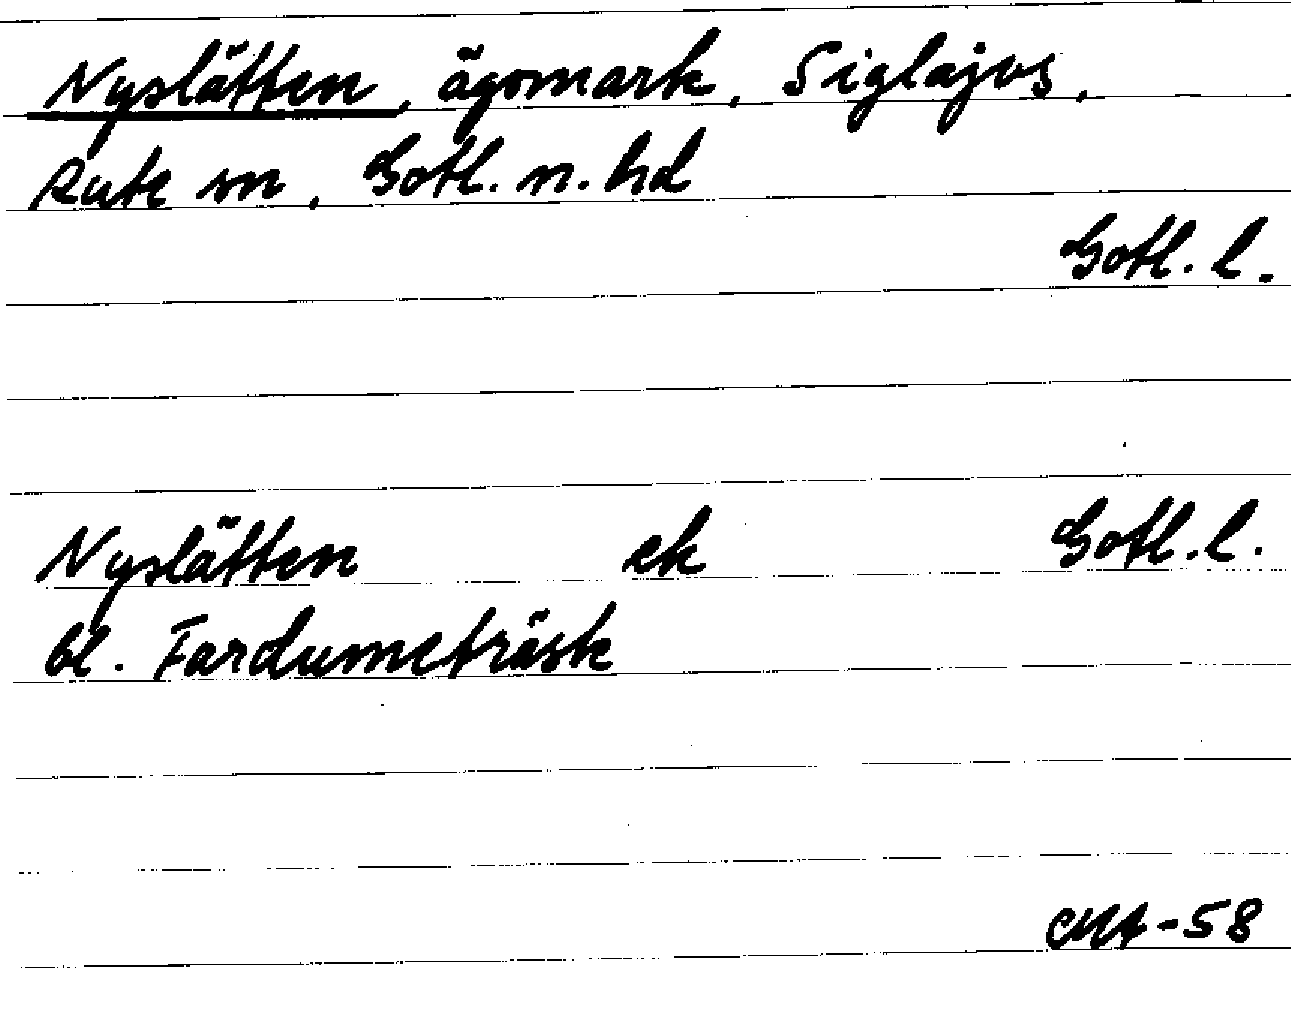 Nyslätten, ägomark, Siglajvs,
Rute sn, Gotl. n. hd
Gotl. l.
Nyslätten ek Gotl. l.
bl. Fardumeträsk
CMA-58